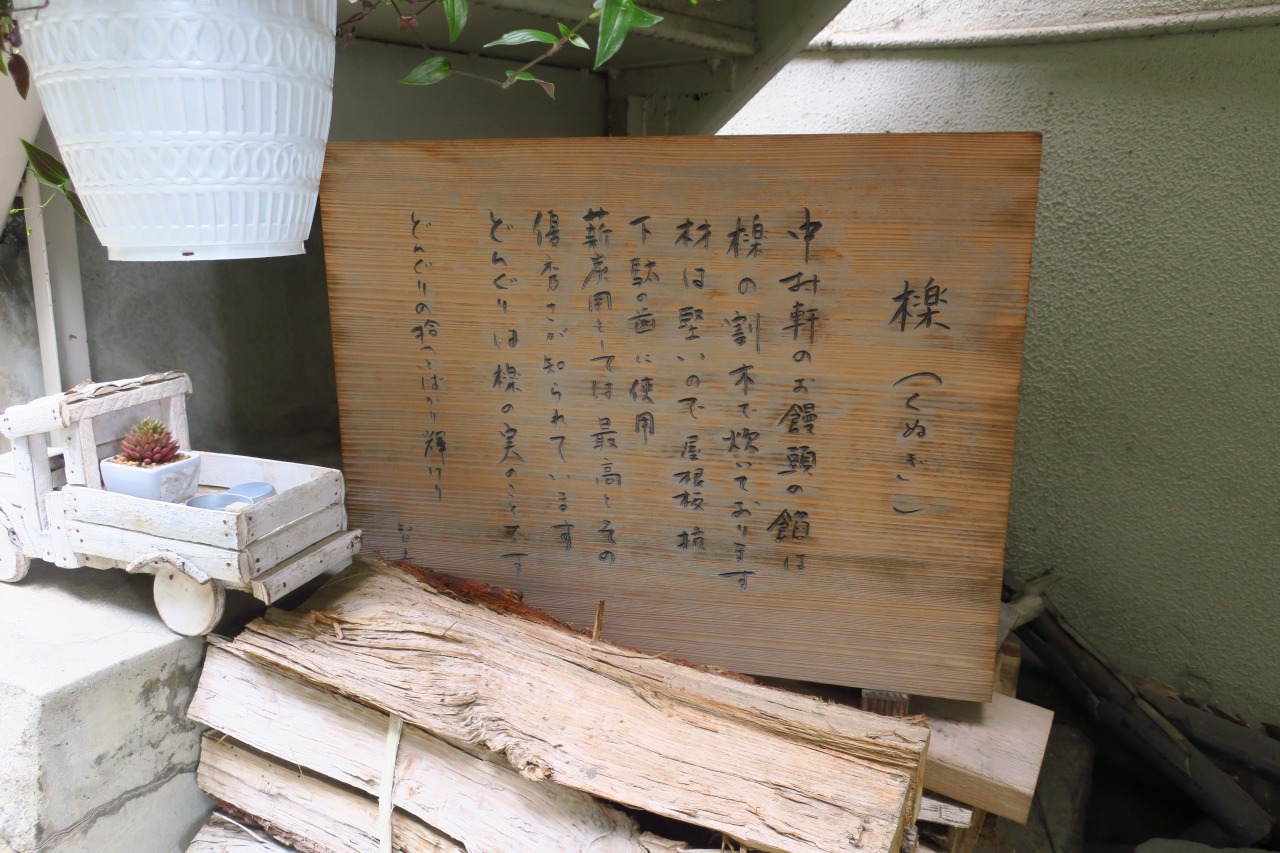 檪（くぬぎ）
中村軒のお饅頭の餡は
檪の割木で炊いております
材は堅いので屋根板 杭
下駄の歯に使用
薪炭用としては最高とその
優秀さが知られています
どんぐりは檪の実のことです
どんぐりの拾へとばかり輝けり